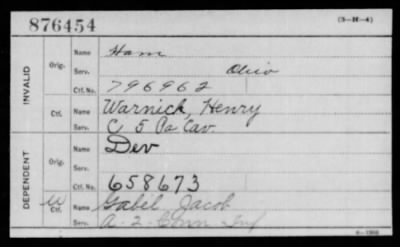 876454 (3-H-4)
INVALID
Orig.
Name Ham
Serv. Ohio
Ctf. No. 796962
Ctf.
Name Warnick, Henry
Serv. C 5 Pa Cav.
DEPENDENT
Orig.
Name Dev
Serv.
Ctf. No. 658673
W Ctf.
Name Gabel Jacob
Serv. A-2-Conn Inf